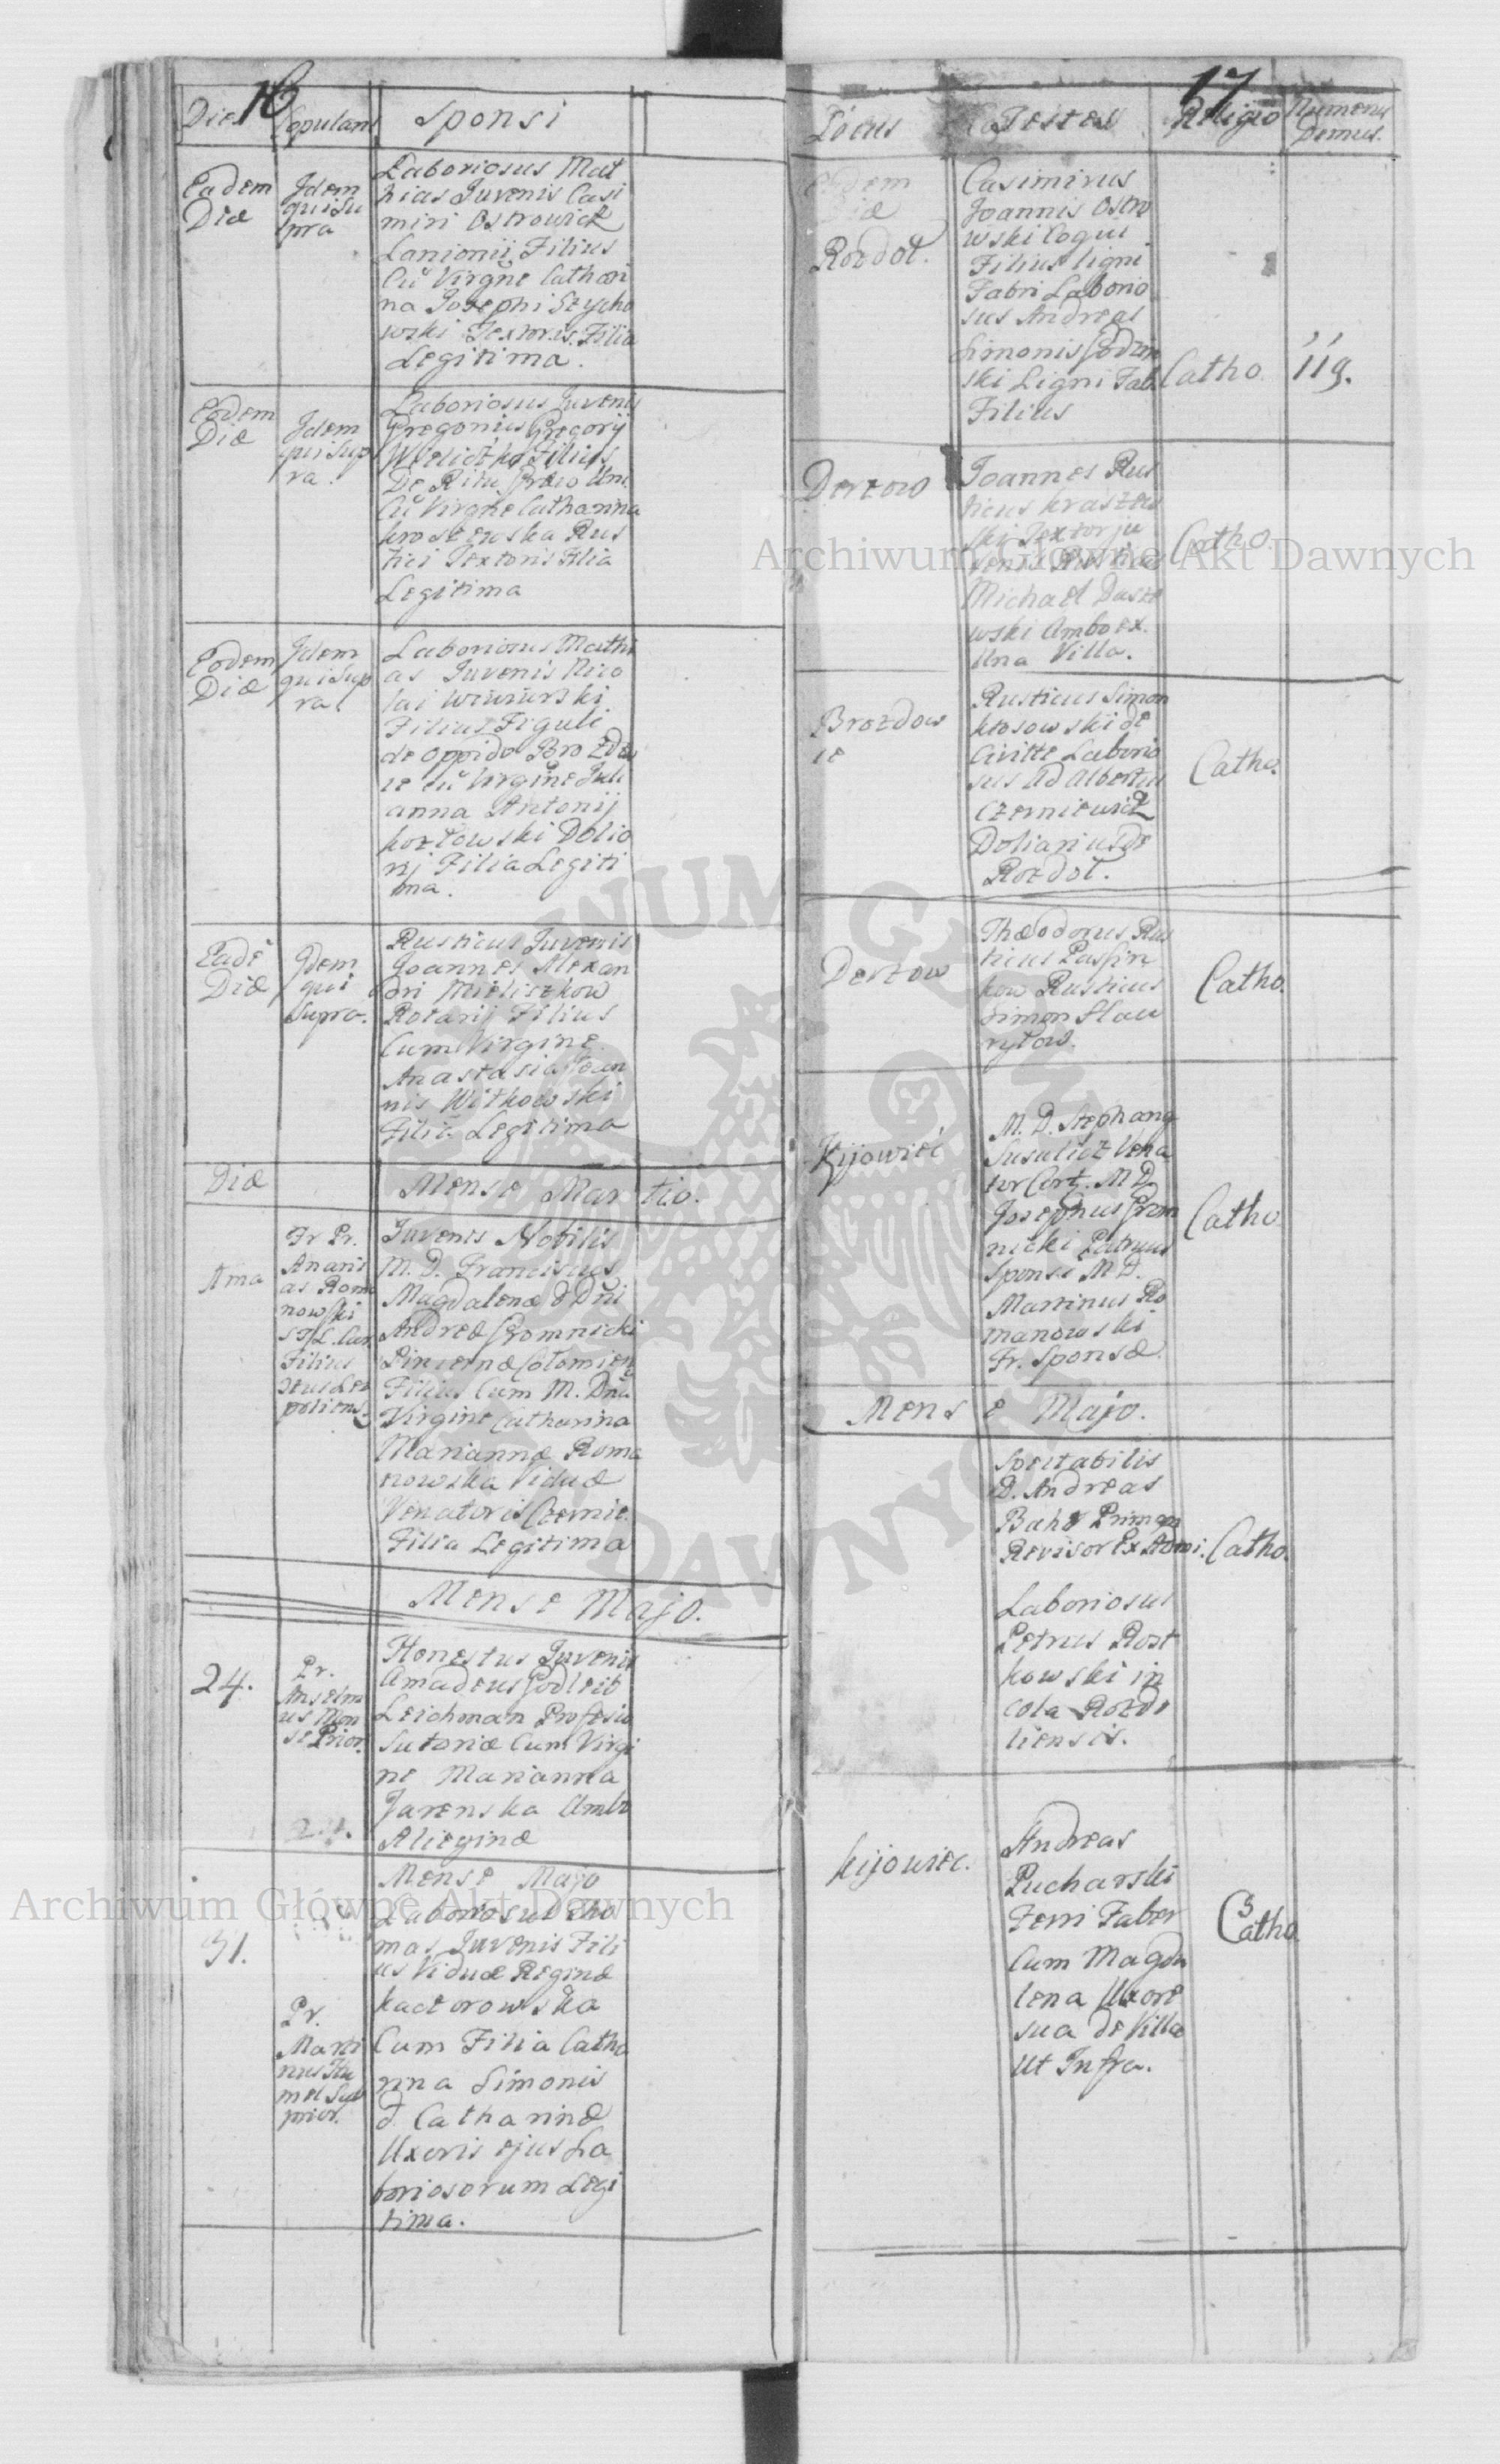 16
Dies
Copulans
Sponsi
Eadem
Die
Idem
qui Su
pra
Laboriosus Mat
hias Juvenis Casi
miri Ostrowick
Lanionij Filius
Cũ Virgne Cathari
na Josephi Stycho
wski Textoris Filia
Legitima.
Eodem
Die
Idem
qui Sup
ra.
Laboriosus Juvenis
Gregorius Gregorij
Filius
De Ritu Graco Uni.
Cũ Virgne Catharina
Rus
tici Textoris Filia
Legitima
Eodem
Die
Idem
qui Sup
ra
Laboriosus Mathi
as Juvenis Nico
lai
Filius Figuli
de Oppido Brozdow
ie cũ Virgine Juli
anna Antonij
Kozłowski Dolio
rij Filia Legiti
ma.
Eadē
Die
Idem
qui
Supra.
Rusticus Juvenis
Joannes Alexan
dri Mieliszkow
Rotarij Filius
Cum Virgine
Anastasia Joan
nis Witkowski
Filia Legitima
Die
Mense Martio.
1ma
Fr Pr.
Anani
as Roma
nowski
Juvenis Nobilis
M. D. Franciscus
Magdalenæ & Dñi
Andreæ Gromnicki
Pincernæ Colomien
Filius Cum M. Dna
Virgine Catharina
Mariannæ Roma
nowska Viduæ
Venatoris Czernie.
Filia Legitima
Mense Majo.
24.
Pr.
Anselm
us Mon
se Prior.
Honestus Juvenis
Amadeus Godleib
Leichman Profesio
Sutoriæ Cum Virgi
ne Marianna
Jarenska Ambo
Alieginæ
31.
Mense Majo
Laboriosus Tho
mas Juvenis Fili
us Viduæ Reginæ
Kaczorowska
Cum Filia Catha
rina Simonis
& Catharinæ
Uxoris ejus La
boriosorum Legi
tima.
Pr.
Marti
nus Hu
mel Sub
prior.
17
Locus
Testes
Religio
Numerus
Domus.
Eadem
Die
Rozdoł.
Casimirus
Joannis Ostro
wski Coqui
Filius ligni
Fabri Laborio
sus Andreas
Simonis
ski Ligni Fab.
Filius
Catho.
119.
Derzow
Joannes Rus
ticus Kraszew
ski Textor ju
venis Rusticus
Michael Dasze
wski Ambo ex.
Una Villa.
Catho
Brozdow
ie
Rusticus Simon
Kłosowski de
Civitte Laborio
sus Ad Albertus
Czerniewicz
Doliarius De
Rozdoł.
Catho.
Derzow
Theodorus Rus
ticus
kow Rusticus
Simon Hau
rytow.
Catho.
Kijowiec
M. D. Stephang
Susulicz Vena
tor Cert. M D.
Josephus Grom
nicki Patruus
Sponsi M D.
Martinus Ro
manowski
Fr. Sponsæ.
Catho
Mense Majo.
Spectabilis
D. Andreas
Bahr Primary
Revisor Ex Admi.
Laboriosus
Petrus Rost
kowski in
cola Rozdo
liensis.
Catho.
Kijowiec.
Andreas
Pucharski
Ferri Faber
Cum Magda
lena Uxore
sua de Villa
Ut Infra.
Catho.
Archiwum Główne Akt Dawnych
Archiwum Główne Akt Dawnych